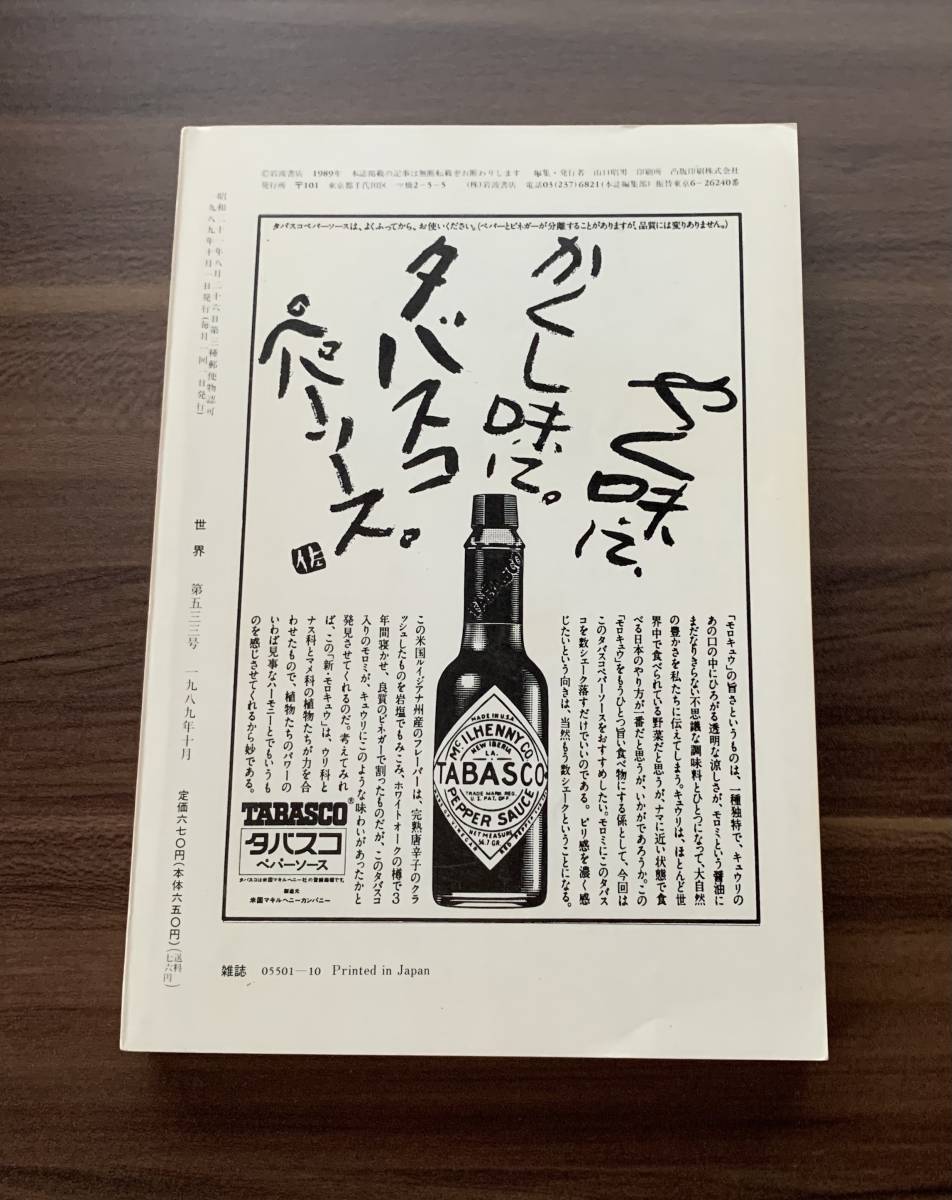 ©岩波書店 1989年 本誌掲載の記事は無断転載をお断わりします 編集・発行者 山口昭男 印刷所 凸版印刷株式会社
発行所 〒101 東京都千代田区一ツ橋2-5-5 (株)岩波書店 電話03(237)6821(本誌編集部) 振替東京6-26240番
タバスコペパーソースは、よくふってから、お使いください。(ペパーとビネガーが分離することがありますが、品質には変りありません。)
やく味に、
かくし味に。
タバスコ
ペパーソース。
「モロキュウ」の旨さというものは、一種独特で、キュウリの
あの口の中にひろがる透明な涼しさが、モロミという醤油に
まだなりきらない不思議な調味料とひとつになって、大自然
の豊かさを私たちに伝えてしまう。キュウリは、ほとんど世
界中で食べられている野菜だと思うが、ナマに近い状態で食
べる日本のやり方が一番だと思うが、いかがであろうか。この
「モロキュウ」をもうひとつ旨い食べ物にする係として、今回は
このタバスコペパーソースをおすすめしたい。モロミにこのタバス
コを数シェーク落すだけでいいのである。ピリ感を濃く感
じたいという向きは、当然もう数シェークということになる。
この米国ルイジアナ州産のフレーバーは、完熟唐辛子のクラ
ッシュしたものを岩塩でもみこみ、ホワイトオークの樽で3
年間寝かせ、良質のビネガーで割ったものだが、このタバスコ
入りのモロミが、キュウリにこのような味わいがあったかと
発見させてくれるのだ。考えてみれ
ば、この「新・モロキュウ」は、ウリ科と
ナス科とマメ科の植物たちが力を合
わせたもので、植物たちのパワーの
いわば見事なハーモニーとでもいうも
のを感じさせてくれるから妙である。
TABASCO
MADE IN U.S.A.
McILHENNY CO.
NEW IBERIA
LA.
TABASCO
TRADE MARK REG.
U.S. PAT. OFF
PEPPER SAUCE
NET MEASURE
56.7 GR
TABASCO®
タバスコ
ペパーソース
タバスコは米国マキルヘニー社の登録商標です。
製造元
米国マキルヘニーカンパニー
昭和二十一年八月二十六日第三種郵便物認可
一九八九年十月一日発行(毎月一回一日発行)
世界 第五三三号 一九八九年十月
定価六七〇円(本体六五〇円)(送料七六円)
雑誌 05501—10 Printed in Japan